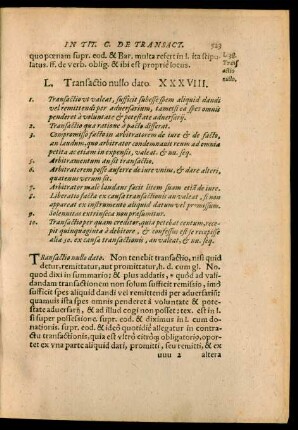 IN TIT. C. DE TRANSACT. 523
quo pœnam supr. eod. & Bar. multa refert in l. ita stipu-
latus. ff. de verb. oblig. & ibi est propriè locus.
L. 38.
Trans
actio
nullo.
L. Transactio nullo dato. XXXVIII.
1. Transactio vt valeat, sufficit subesse spem aliquid dandi
vel remittendi per aduersarium, tametsi ea spes omni
penderet à voluntate & potestate aduersarij.
2. Transactio qua ratione à pacto differat.
3. Compromisso facto in arbitratorem de iure & de facto,
an laudum, quo arbitrator condemnauit reum ad omnia
petita ac etiam in expensis, valeat. & nu. seq.
5. Arbitramentum an sit transactio.
6. Arbitratorem posse auferre de iure vnius, & dare alteri,
quatenus verum sit.
7. Arbitrator malè laudans facit litem suam etiã de iure.
8. Liberatio facta ex causa transactionis an valeat, si non
appareat ex instrumento aliquid datum vel promissum.
9. Solennitas extrinseca non præsumitur.
10. Transactio per quam creditor, quia petebat centum, rece-
pit quinquaginta à debitore, & confessus est se recepisse
alia 50. ex causa transactionis, an valeat, & nu. seq.
Transactio nullo dato. Non tenebit transactio, nisi quid
detur, remittatur, aut promittatur, h. d. cum gl. No.
quod dixi in summario; & plus addatis, quòd ad vali-
dandam transactionem non solum sufficit remissio, imò
sufficit spes aliquid dandi vel remittendi per aduersariũ:
quamuis ista spes omni penderet à voluntate & pote-
state aduersarij, & ad illud cogi non posset: tex. est in l.
si super possessione. supr. eod. & diximus in l. cum do-
nationis. supr. eod. & ideò quotidie allegatur in contra-
ctu transactionis, quia est vltrò citróq; obligatorio, opor-
tet ex vna parte aliquid dari, promitti, seu remitti, & ex
uuu 2 altera